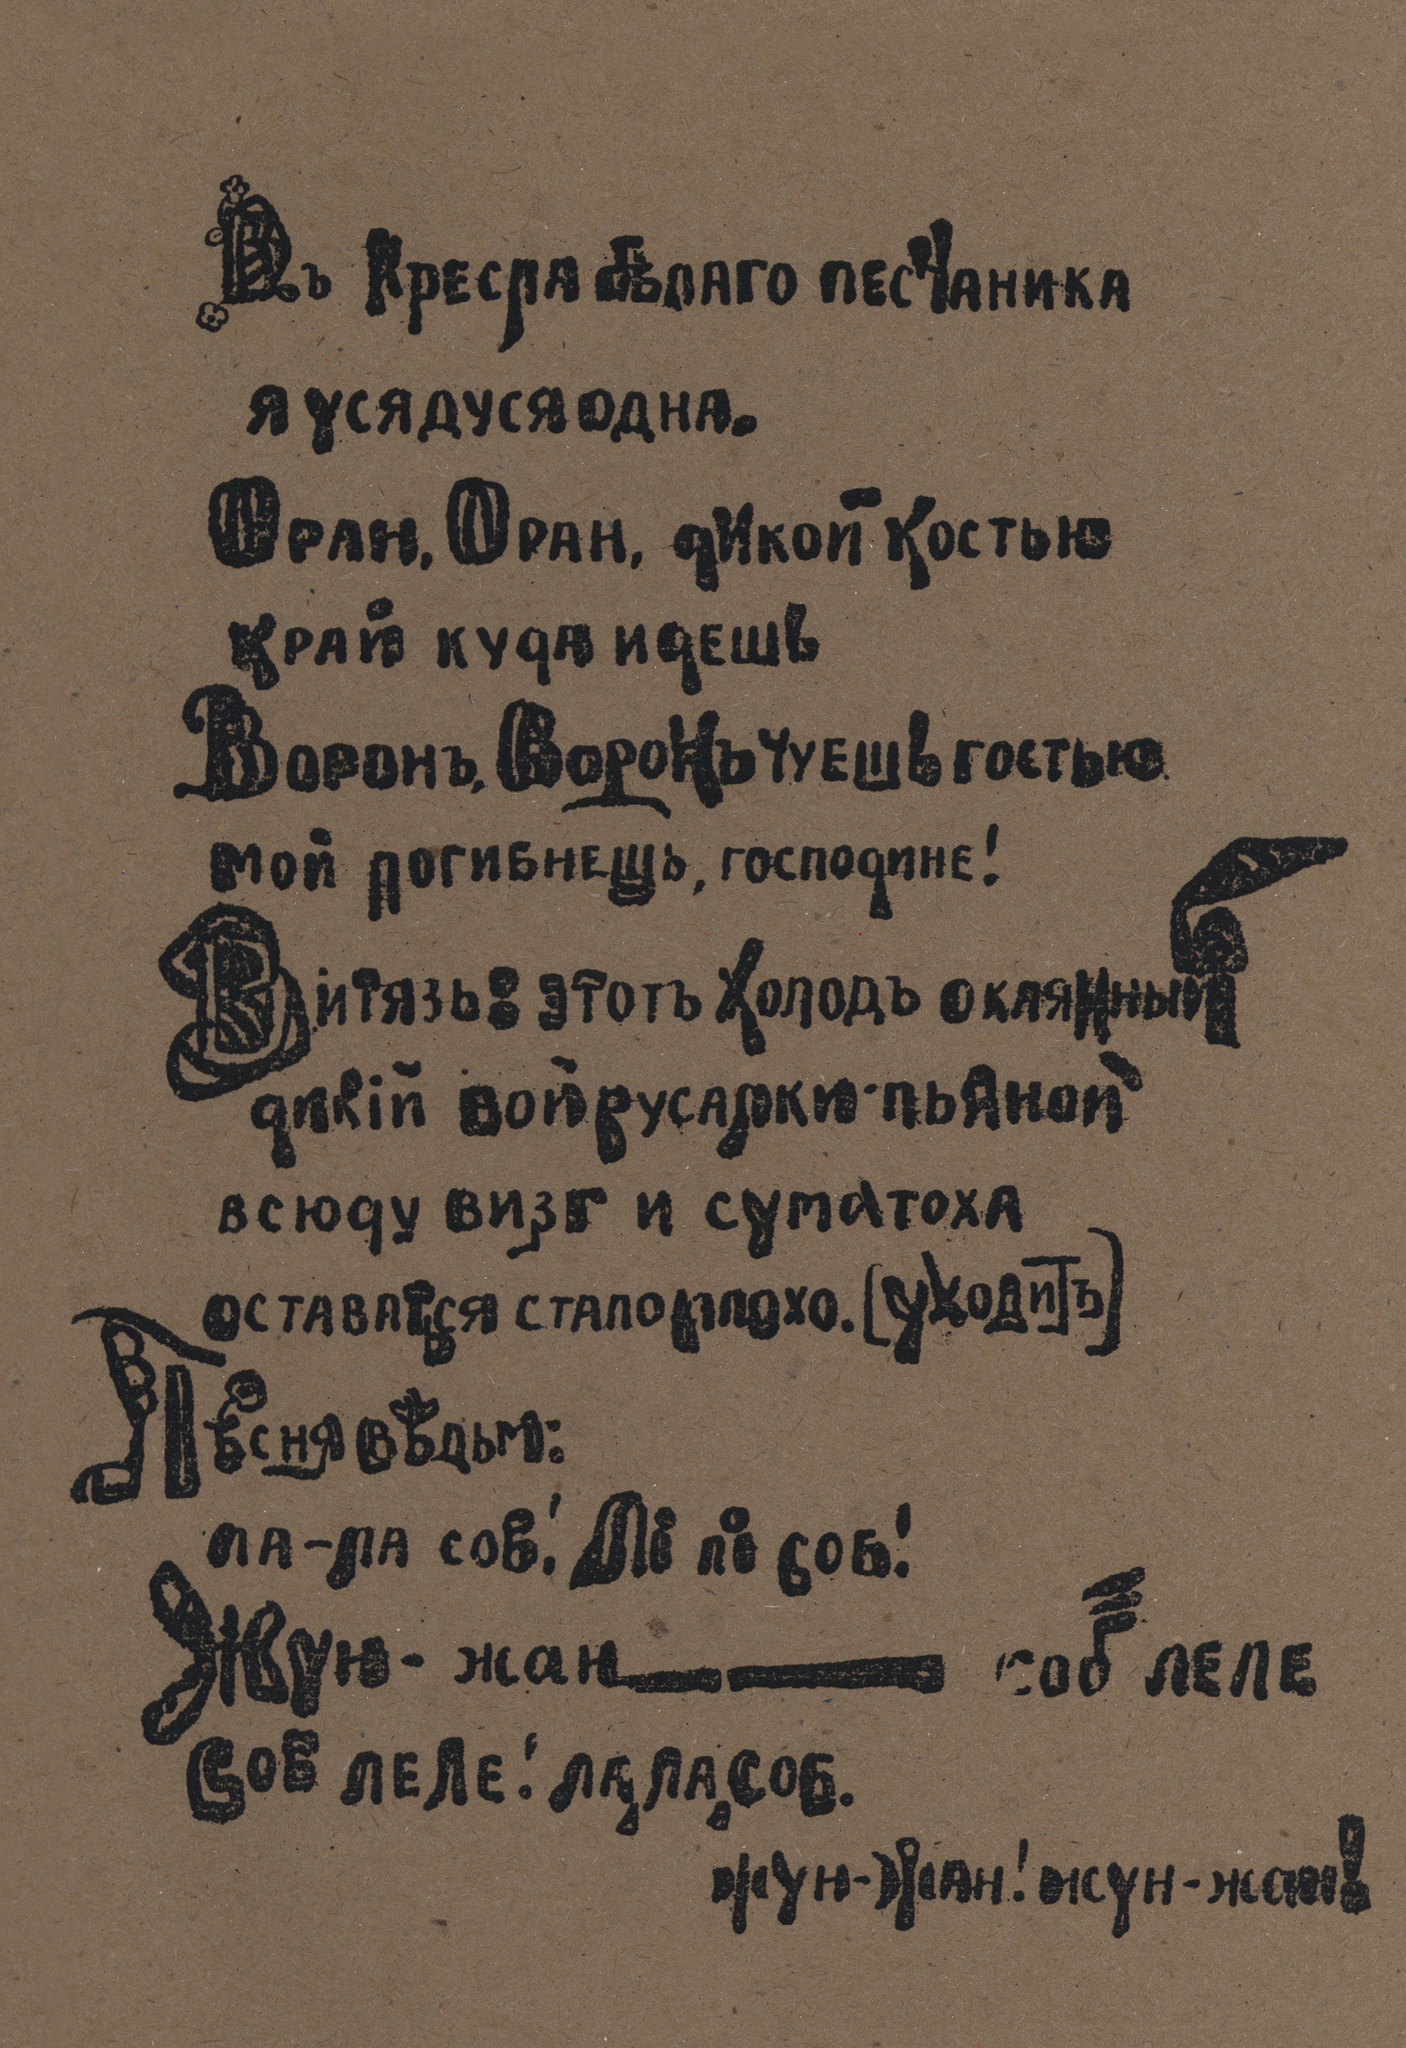 Въ кресла бѣлаго песчаника
я усядуся одна.
Оран, Оран, дикой костью
край куда идешь
Воронъ, Воронъ чуешь гостью
мой погибнешь, господине!
Витязь: этотъ холодъ окаянный
дикiй вой русалки пьяной
всюду визг и суматоха
оставаться стало плохо. (уходитъ)
Пѣсня вѣдьм:
ла-ла сов! Лi лi соб!
Жун-жан —— соб леле
соб леле! ла, ла, соб.
жун-жан! жун-жан!